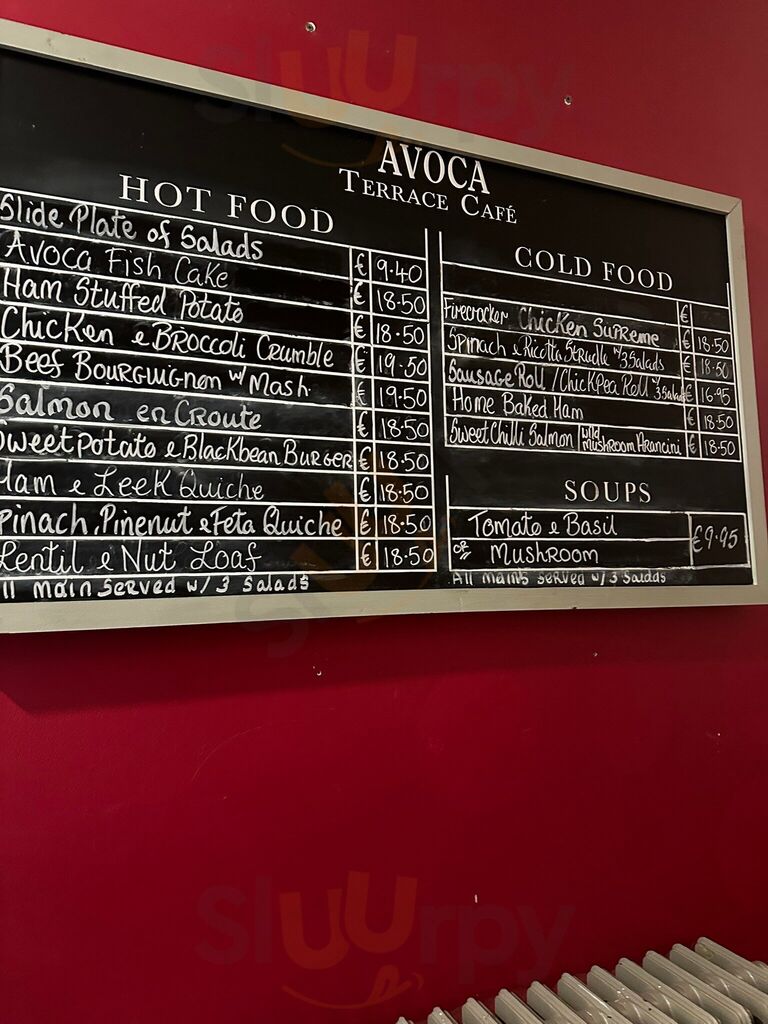 AVOCA
TERRACE CAFÉ
HOT FOOD
Slide Plate of Salads € 9.40
Avoca Fish Cake € 18.50
Ham Stuffed Potato € 18.50
Chicken & Broccoli Crumble € 19.50
Beef Bourguignon w/ Mash € 19.50
Salmon en Croute € 18.50
Sweet Potato & Blackbean Burger € 18.50
Ham & Leek Quiche € 18.50
pinach, Pinenut & Feta Quiche € 18.50
Lentil & Nut Loaf € 18.50
ll main served w/ 3 Salads
COLD FOOD
€
Firecracker Chicken Supreme € 18.50
Spinach & Ricotta Strudle w/ 3 Salads € 18.50
Sausage Roll / Chickpea Roll w/ 3 Salads € 16.95
Home Baked Ham € 18.50
Sweet Chilli Salmon | wild mushroom Arancini € 18.50
SOUPS
Tomato & Basil €9.95
or Mushroom
All mains served w/ 3 Salads
Sluurpy
Sluurpy